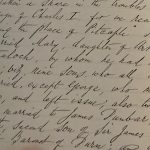 taken a share in the troubles
of Charles I. for in rea
the place of
ried Mary, daughter of
aloch, by whom he had
but nine Sons who all
ried, except George, who m
and left issue; also
married to James Dunbar
Second Son of Sir James
Baronet of Durn.